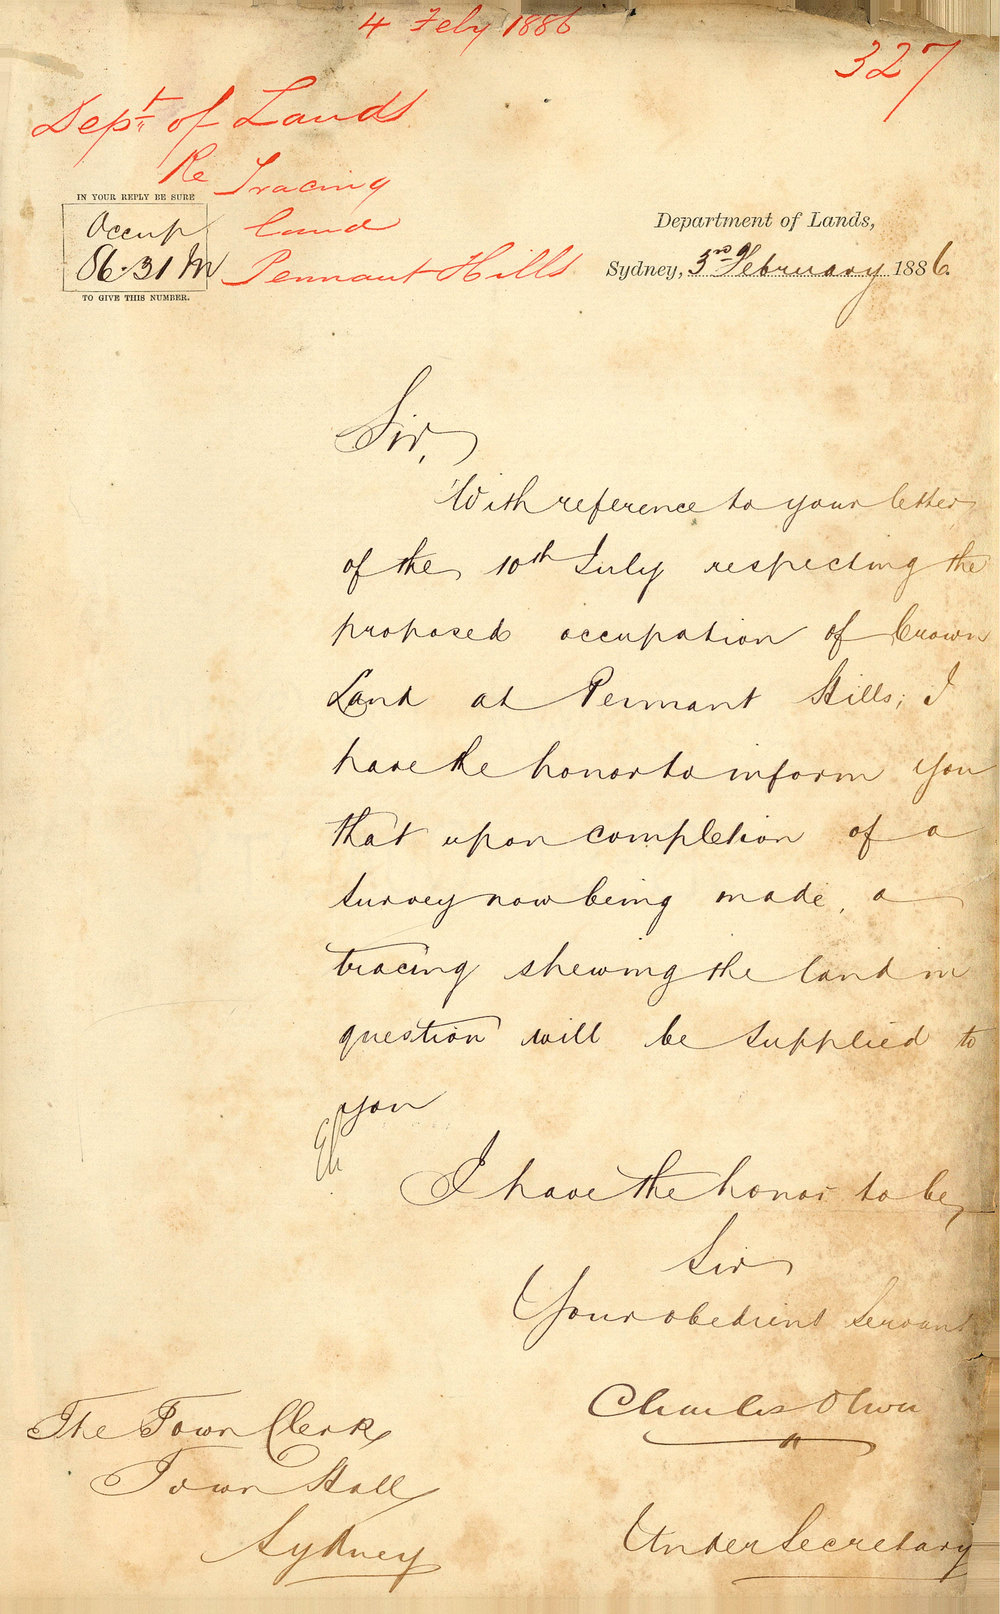 4 Feby 1886
327
Dept. of Lands
Re Tracing
land
Pennant Hills
IN YOUR REPLY BE SURE
Occup
86.31 M
TO GIVE THIS NUMBER.
Department of Lands,
Sydney, 3rd February 1886.
Sir,
With reference to your letter
of the 10th July respecting the
proposed occupation of Crown
Land at Pennant Hills; I
have the honor to inform you
that upon completion of a
survey now being made, a
tracing shewing the land in
question will be supplied to
you
I have the honor to be,
Sir
Your obedient Servant
Charles Oliver
Under Secretary
The Town Clerk
Town Hall
Sydney